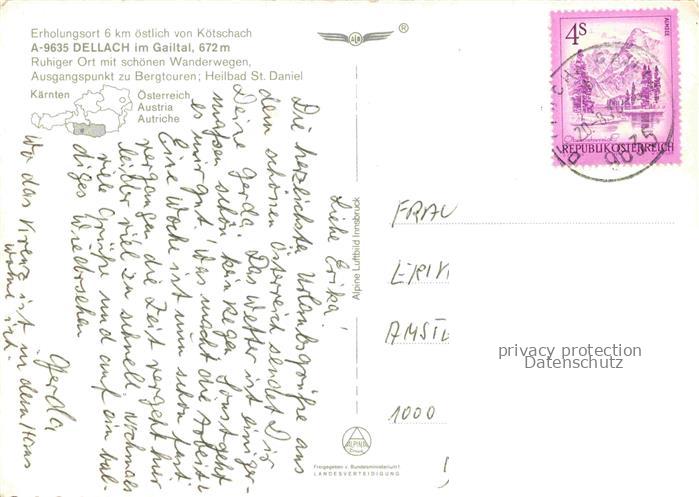 Erholungsort 6 km östlich von Kötschach
A-9635 DELLACH im Gailtal, 672 m
Ruhiger Ort mit schönen Wanderwegen,
Ausgangspunkt zu Bergtouren; Heilbad St. Daniel
Kärnten
Österreich
Austria
Autriche
®
4S
ALMSEE
REPUBLIK ÖSTERREICH
9635
Liebe Erika!
Die herzlichste Urlaubsgrüße aus
dem schönen Österreich sendet Dir
Deine Gerda. Das Wetter ist einiger-
maßen schön, kein Regen. Sonst geht
es mir gut. Was macht die Arbeit?
Eine Woche ist nun schon fast
vergangen die Zeit vergeht hier
leider viel zu schnell. Nochmals
viele Grüße und auf ein bal-
diges Wiedersehen
Gerda
Wo das Kreuz ist in dem Haus
wohne ich.
Alpine Luftbild Innsbruck
FRAU
ERIK
AMST
1000
privacy protection
Datenschutz
ALPINE
Freigegeben v. Bundesministerium f.
LANDESVERTEIDIGUNG